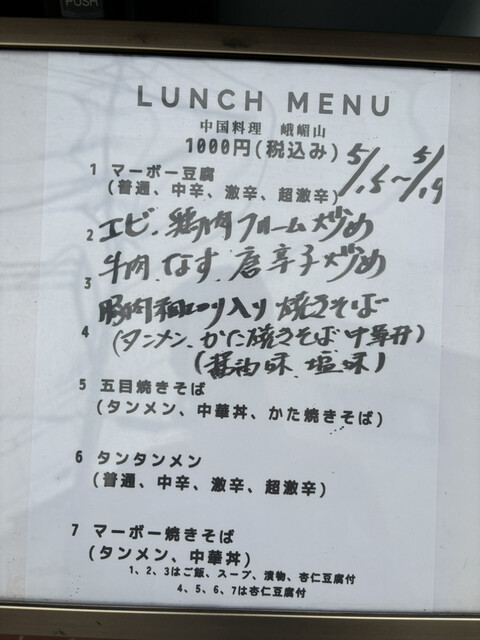 PUSH
LUNCH MENU
中国料理 峨嵋山
1000円(税込み)
5/15～5/19
1 マーボー豆腐
(普通、中辛、激辛、超激辛)
2 エビ、鶏肉クリーム炒め
3 牛肉、なす、唐辛子炒め
4 豚肉 入り焼きそば
(タンメン、かた焼きそば中華丼)
(醤油味、塩味)
5 五目焼きそば
(タンメン、中華丼、かた焼きそば)
6 タンタンメン
(普通、中辛、激辛、超激辛)
7 マーボー焼きそば
(タンメン、中華丼)
1、2、3はご飯、スープ、漬物、杏仁豆腐付
4、5、6、7は杏仁豆腐付